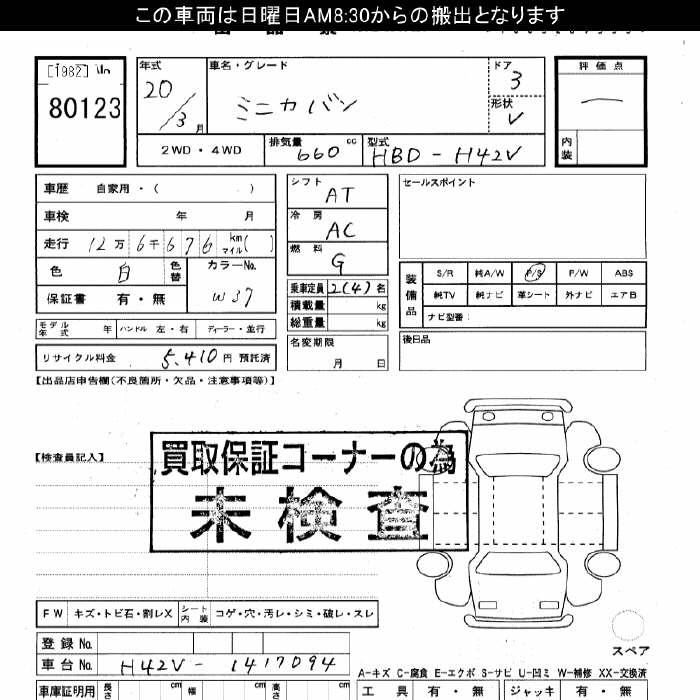 この車両は日曜日AM8:30からの搬出となります
[1982]
80123
年式 車名・グレード ドア 評価点
20/3月 ミニカバン 3
形状 V
一
2WD・4WD 排気量 660 cc 型式 HBD-H42V 内装
車歴 自家用・( )
車検 年 月
走行 12万6千676 km マイル( )
色 白 色替 カラーNo. W37
保証書 有・無
モデル年式 年 ハンドル 左・右 ディーラー・並行
リサイクル料金 5,410円 預託済
シフト AT
冷房 AC
燃料 G
乗車定員 2(4)名
積載量 kg
総重量 kg
名変期限
月 日
セールスポイント
装備品 S/R 純A/W P/S P/W ABS
純TV 純ナビ 革シート 外ナビ エアB
ナビ型番:
後日品
【出品店申告欄(不良箇所・欠品・注意事項等)】
【検査員記入】
買取保証コーナーの為
未検査
FW キズ・トビ石・割レX シート内装 コゲ・穴・汚レ・シミ・破レ・スレ
スペア
登録No.
車台No. H42V-1417094
A-キズ C-腐食 E-エクボ S-サビ U-凹ミ W-補修 XX-交換済
車庫証明用 長さ cm 幅 cm 高さ cm 工具 有・無 ジャッキ 有・無